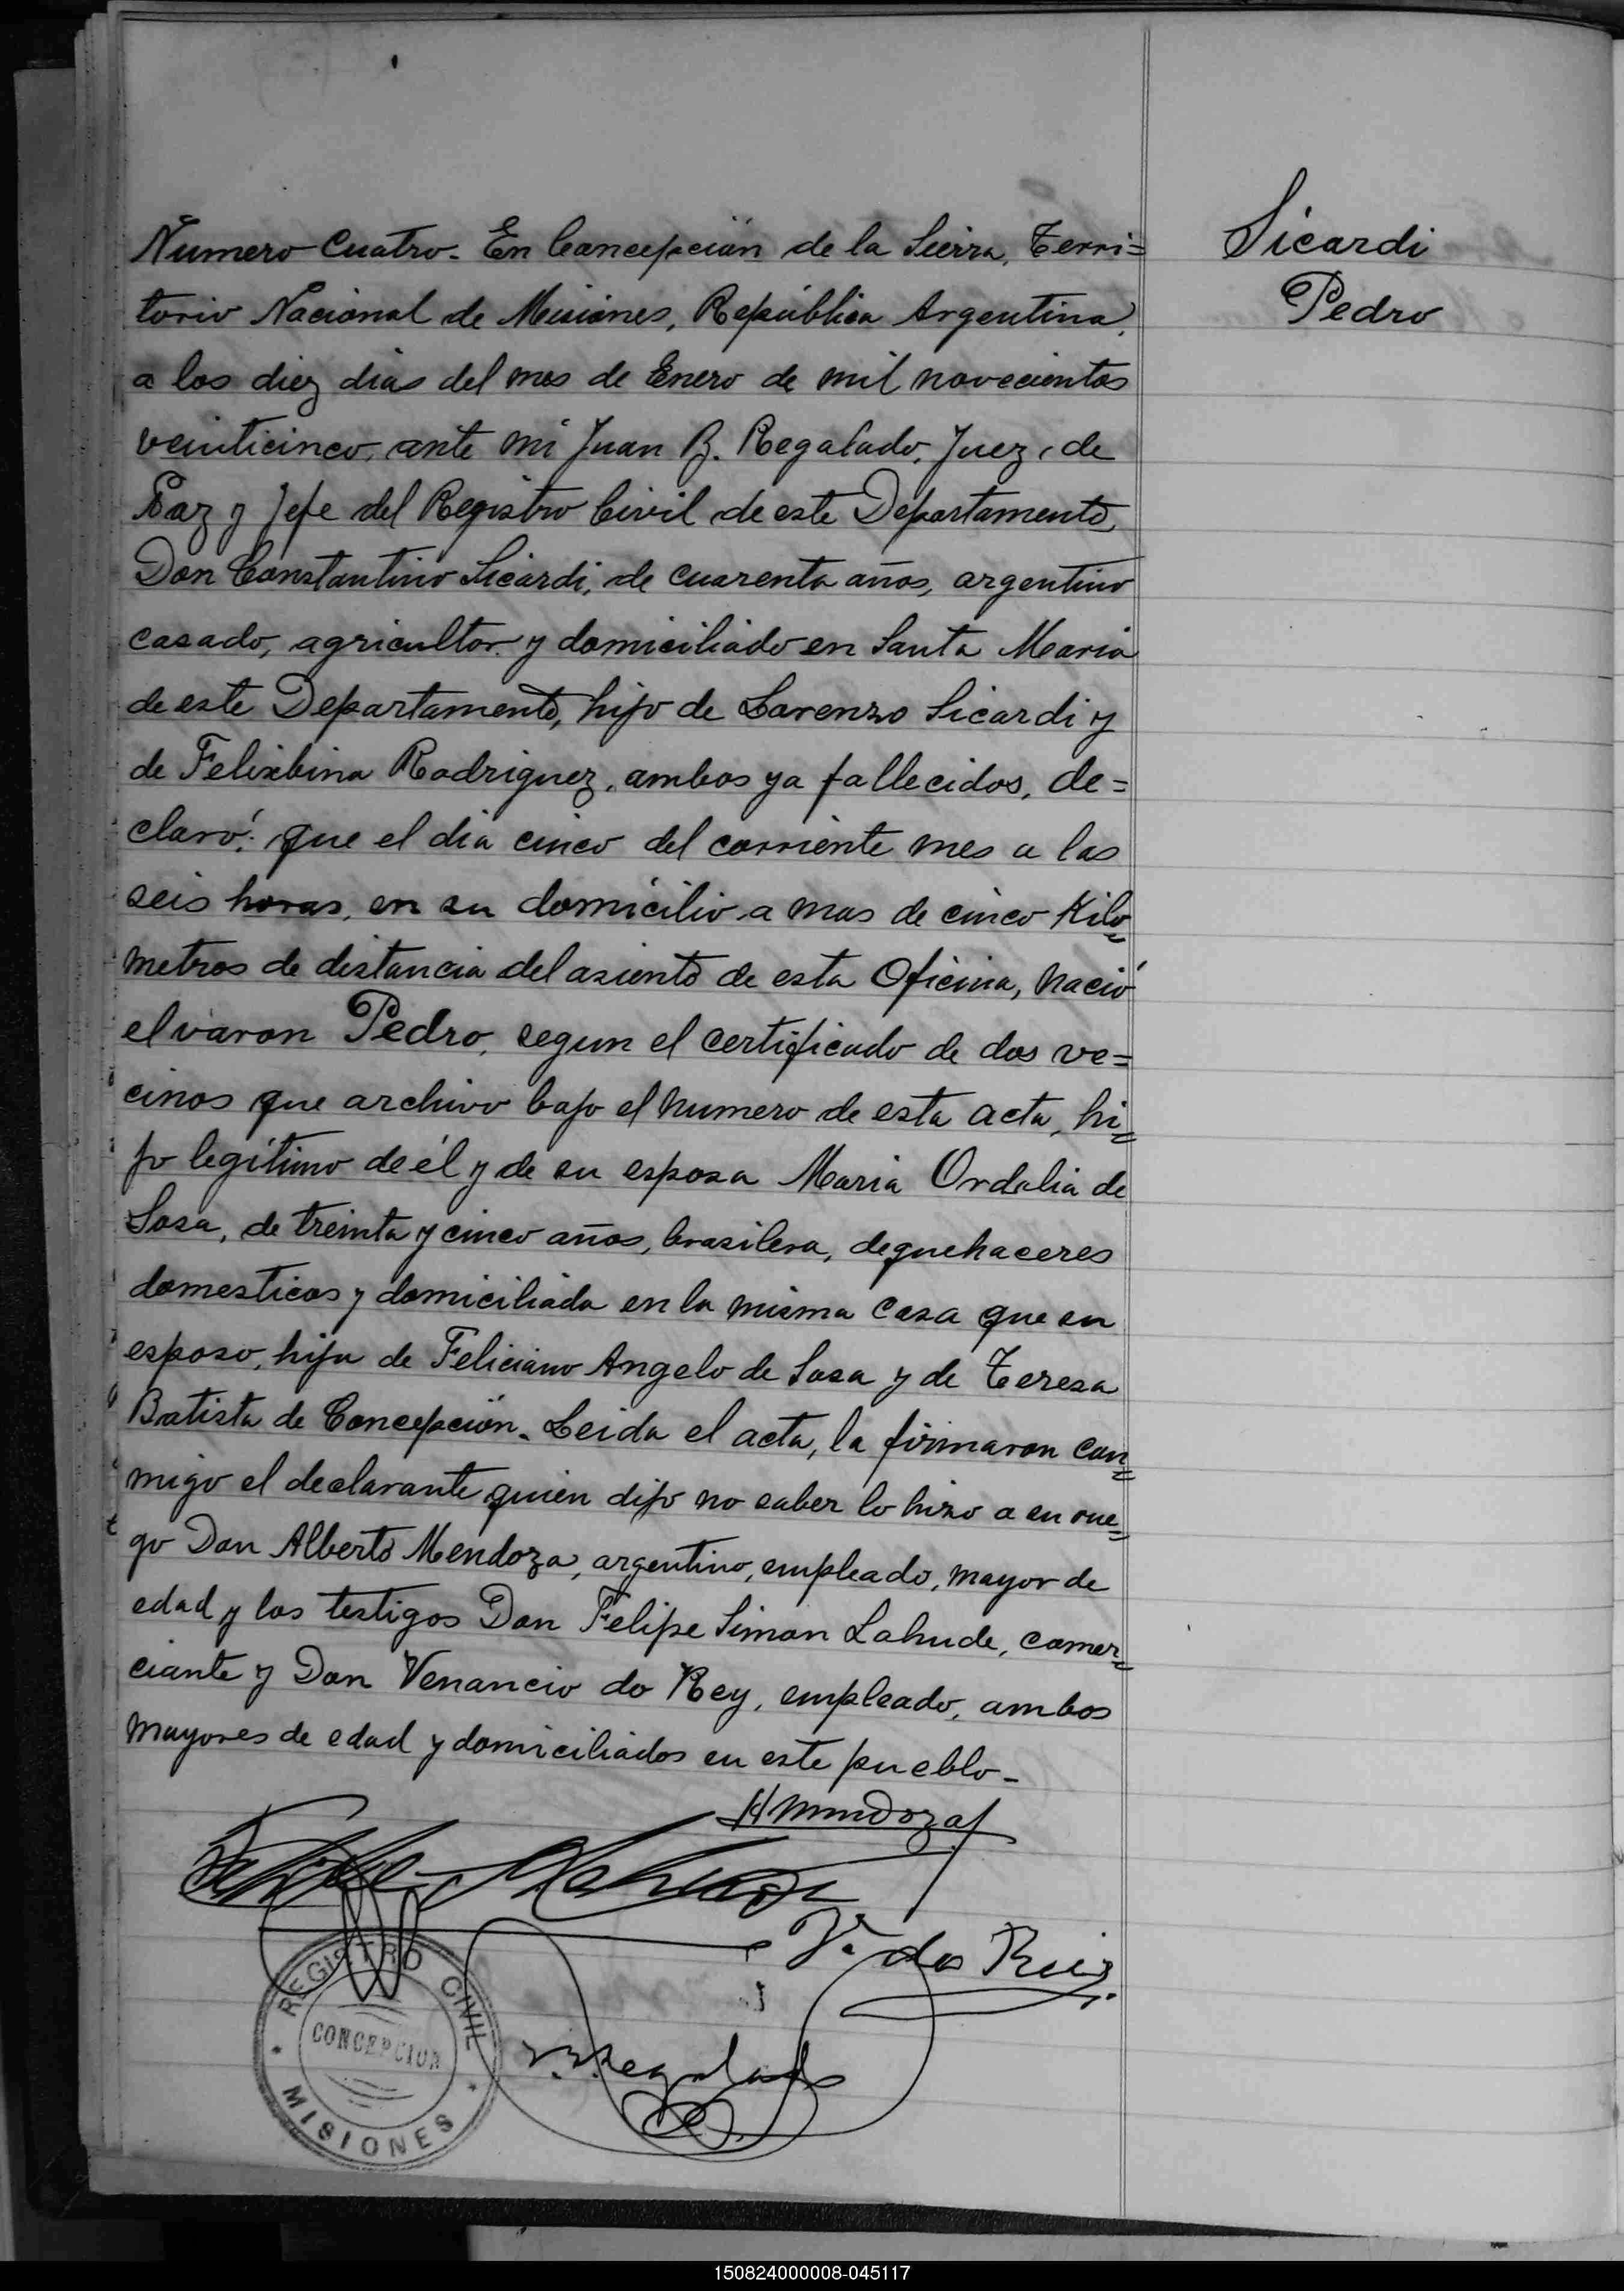 Sicardi
Pedro
Numero Cuatro- En Concepción de la Sierra, Terri=
torio Nacional de Misiones, República Argentina,
a los diez dias del mes de Enero de mil novecientos
veinticinco, ante mi Juan B. Regalado, Juez de
Paz y Jefe del Registro Civil de este Departamento,
Don Constantino Sicardi, de cuarenta años, argentino
casado, agricultor y domiciliado en Santa Maria
de este Departamento, hijo de Lorenzo Sicardi y
de Felixbina Rodriguez, ambos ya fallecidos, de=
claró: que el dia cinco del corriente mes a las
seis horas, en su domicilio a mas de cinco Kilo=
metros de distancia del asiento de esta Oficina, nació
el varon Pedro, segun el certificado de dos ve=
cinos que archivo bajo el numero de esta acta, hi=
jo legítimo de él y de su esposa Maria Ordalia de
Sosa, de treinta y cinco años, brasilera, de quehaceres
domesticos y domiciliada en la misma casa que su
esposo, hija de Feliciano Angelo de Sosa y de Teresa
Batista de Concepción. Leida el acta, la firmaron con=
migo el declarante quien dijo no saber lo hizo a su rue=
go Don Alberto Mendoza, argentino, empleado, mayor de
edad y los testigos Don Felipe Simon Lahude, comer=
ciante y Don Venancio do Rey, empleado, ambos
mayores de edad y domiciliados en este pueblo-
Mendoza
REGISTRO CIVIL
CONCEPCION
MISIONES
150824000008-045117